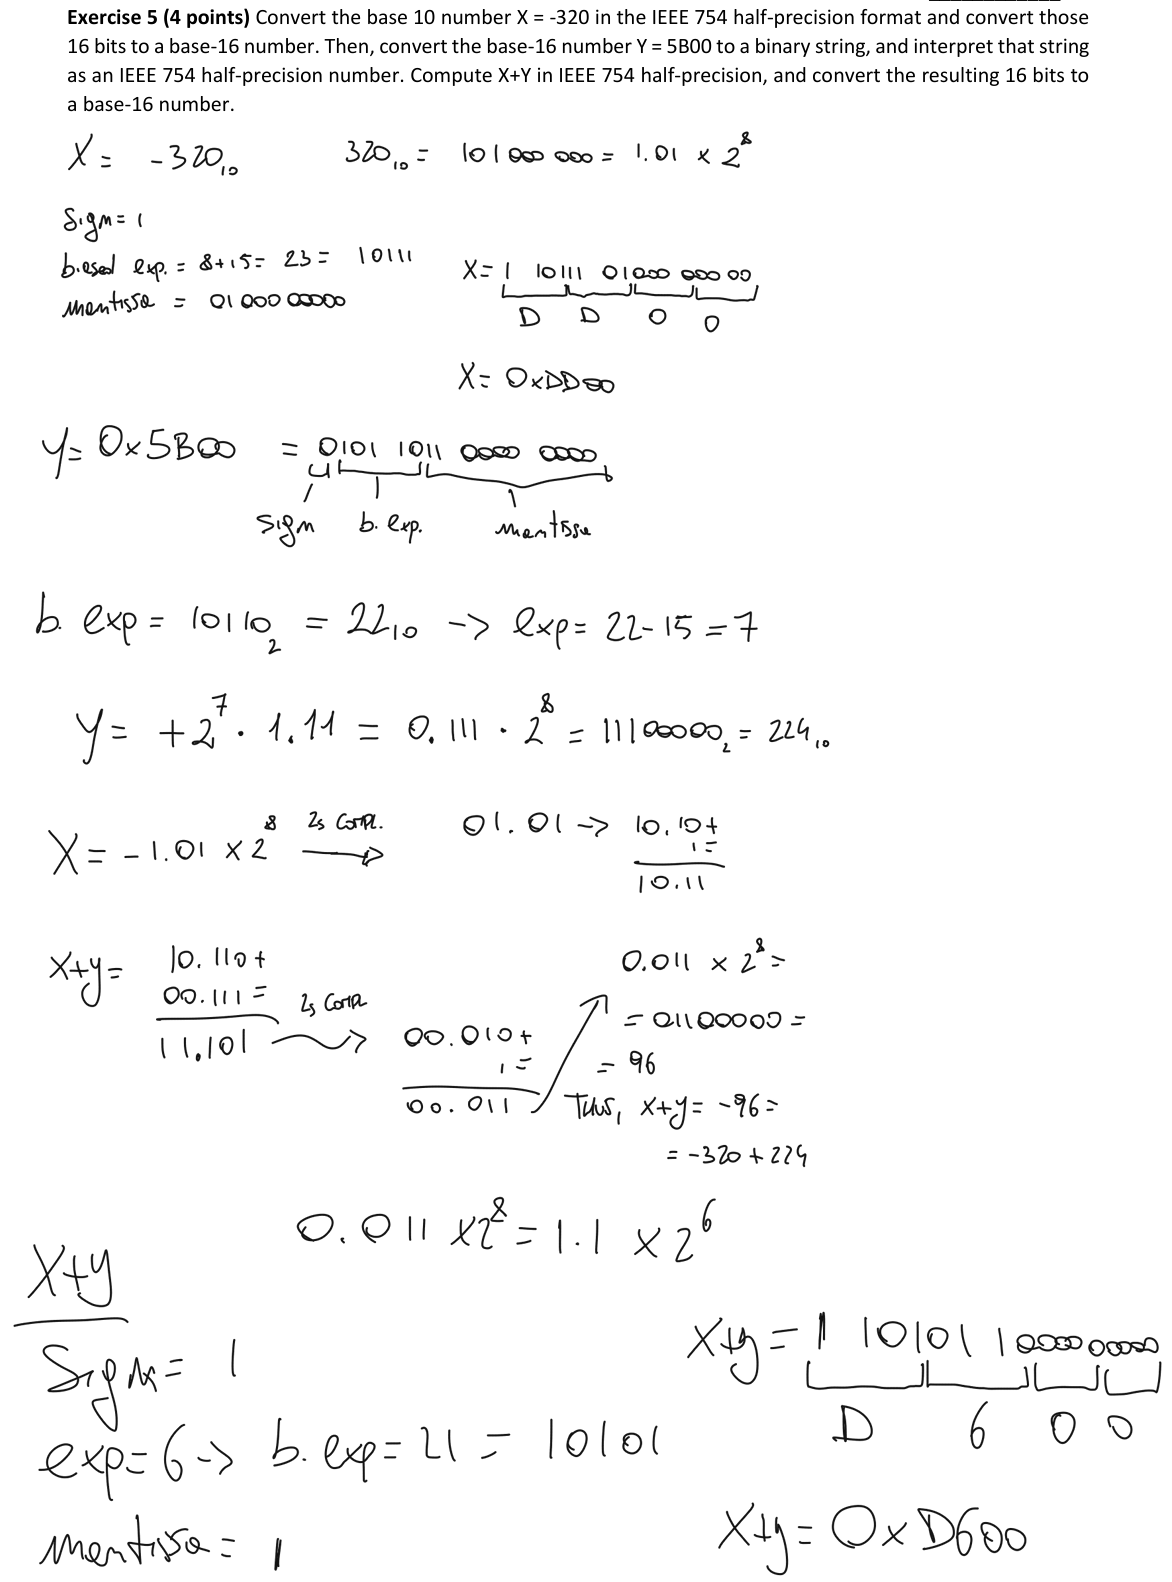 Exercise 5 (4 points) Convert the base 10 number X = -320 in the IEEE 754 half-precision format and convert those
16 bits to a base-16 number. Then, convert the base-16 number Y = 5B00 to a binary string, and interpret that string
as an IEEE 754 half-precision number. Compute X+Y in IEEE 754 half-precision, and convert the resulting 16 bits to
a base-16 number.
X = -320₁₀ 320₁₀ = 101000000 = 1.01 x 2⁸
Sign = 1
biased exp. = 8+15 = 23 = 10111
mantissa = 0100000000
X = 1 10111 0100000000
D D 0 0
X = 0xDD00
Y = 0x5B00 = 0101 1011 0000 0000
sign b. exp. mantissa
b. exp = 10110₂ = 22₁₀ -> exp = 22-15 = 7
Y = +2⁷ · 1.11 = 0.111 · 2⁸ = 11100000₂ = 224₁₀
X = -1.01 x 2⁸ 2s Compl. → 01.01 -> 10.10+
1=
10.11
X+Y = 10.110+
00.111=
11.101
2s Compl
00.010+
1=
00.011
0.011 x 2⁸ =
= 01100000 =
= 96
Thus, X+Y = -96 =
= -320 + 224
0.011 x 2⁸ = 1.1 x 2⁶
X+Y
Sign = 1
exp = 6 -> b. exp = 21 = 10101
mantissa = 1
X+Y = 1 10101 1000000000
D 6 0 0
X+Y = 0xD600